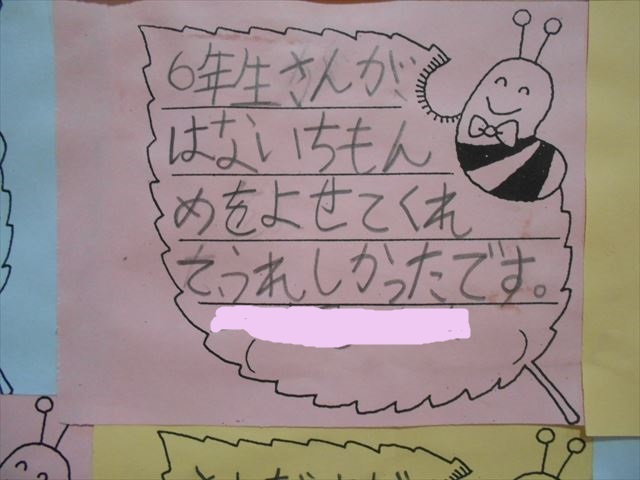 6年生さんが
はないちもん
めをよせてくれ
てうれしかったです。